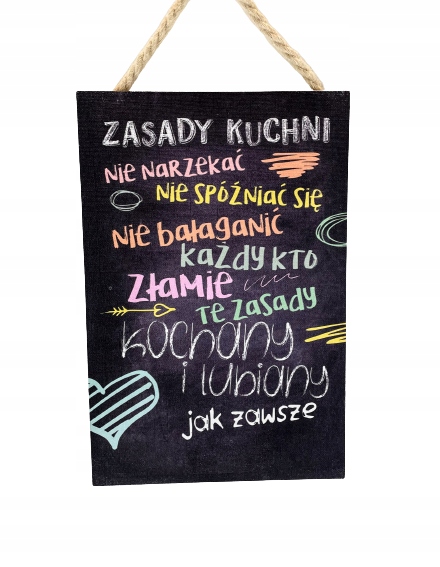 ZASADY KUCHNI
NIE NARZEKAĆ
NIE SPÓŹNIAĆ SIĘ
NIE BAŁAGANIĆ
KAŻDY KTO
ZŁAMIE
TE ZASADY
kochany
i lubiany
jak zawsze